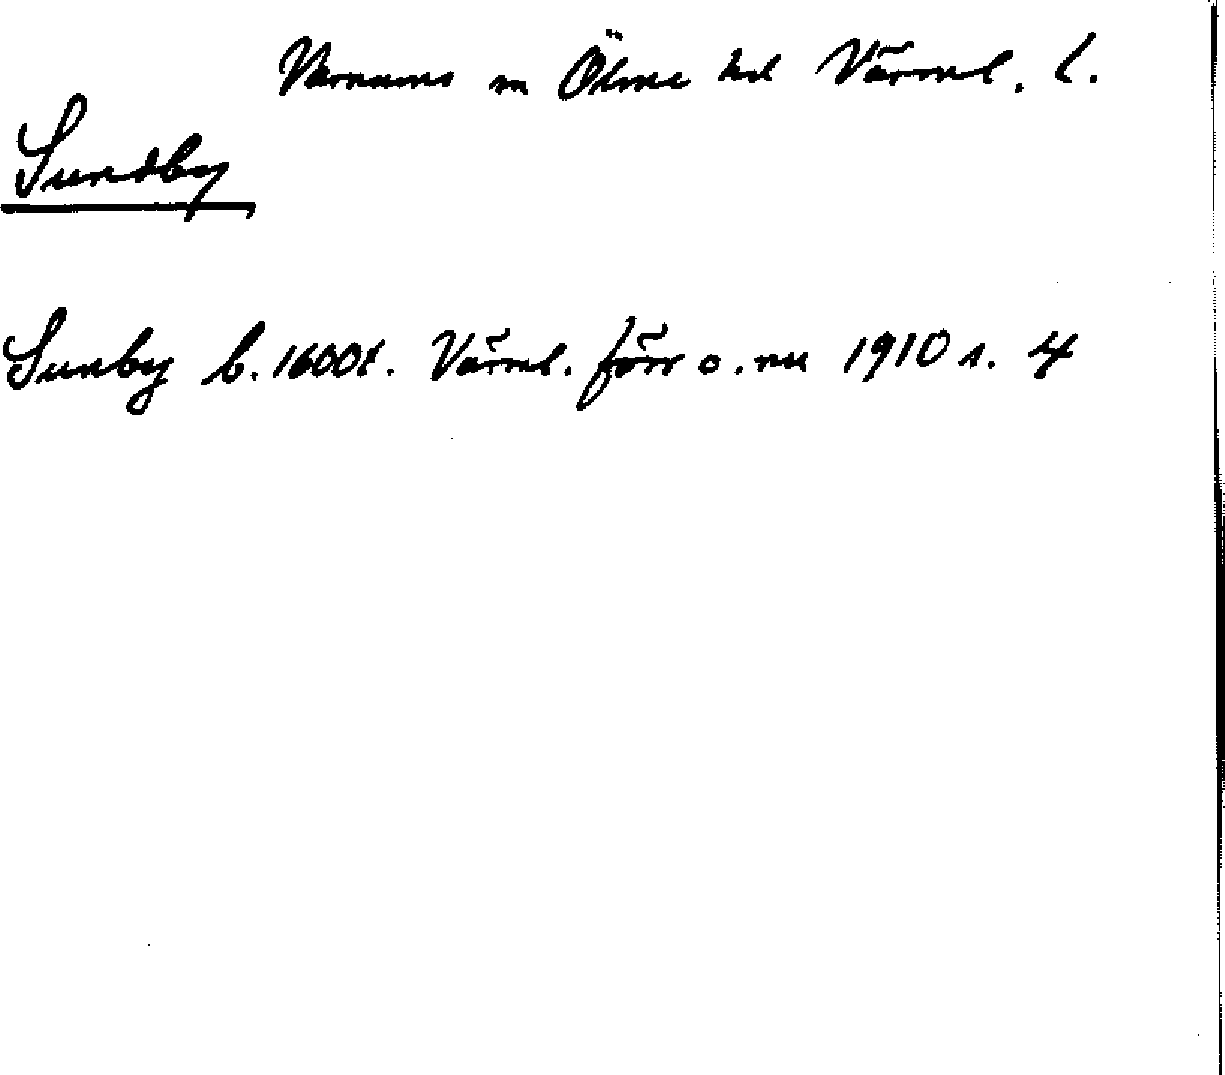 Varnums sn Ölme hd Värml. l.
Sundby
Sunby b. 1600t. Värml. förr o. nu 1910 s. 4